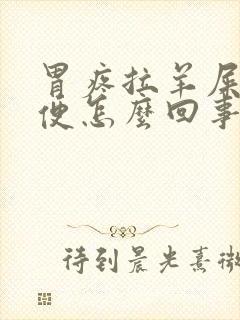 胃疼拉羊屎
便怎麼回事
待到晨光熹微